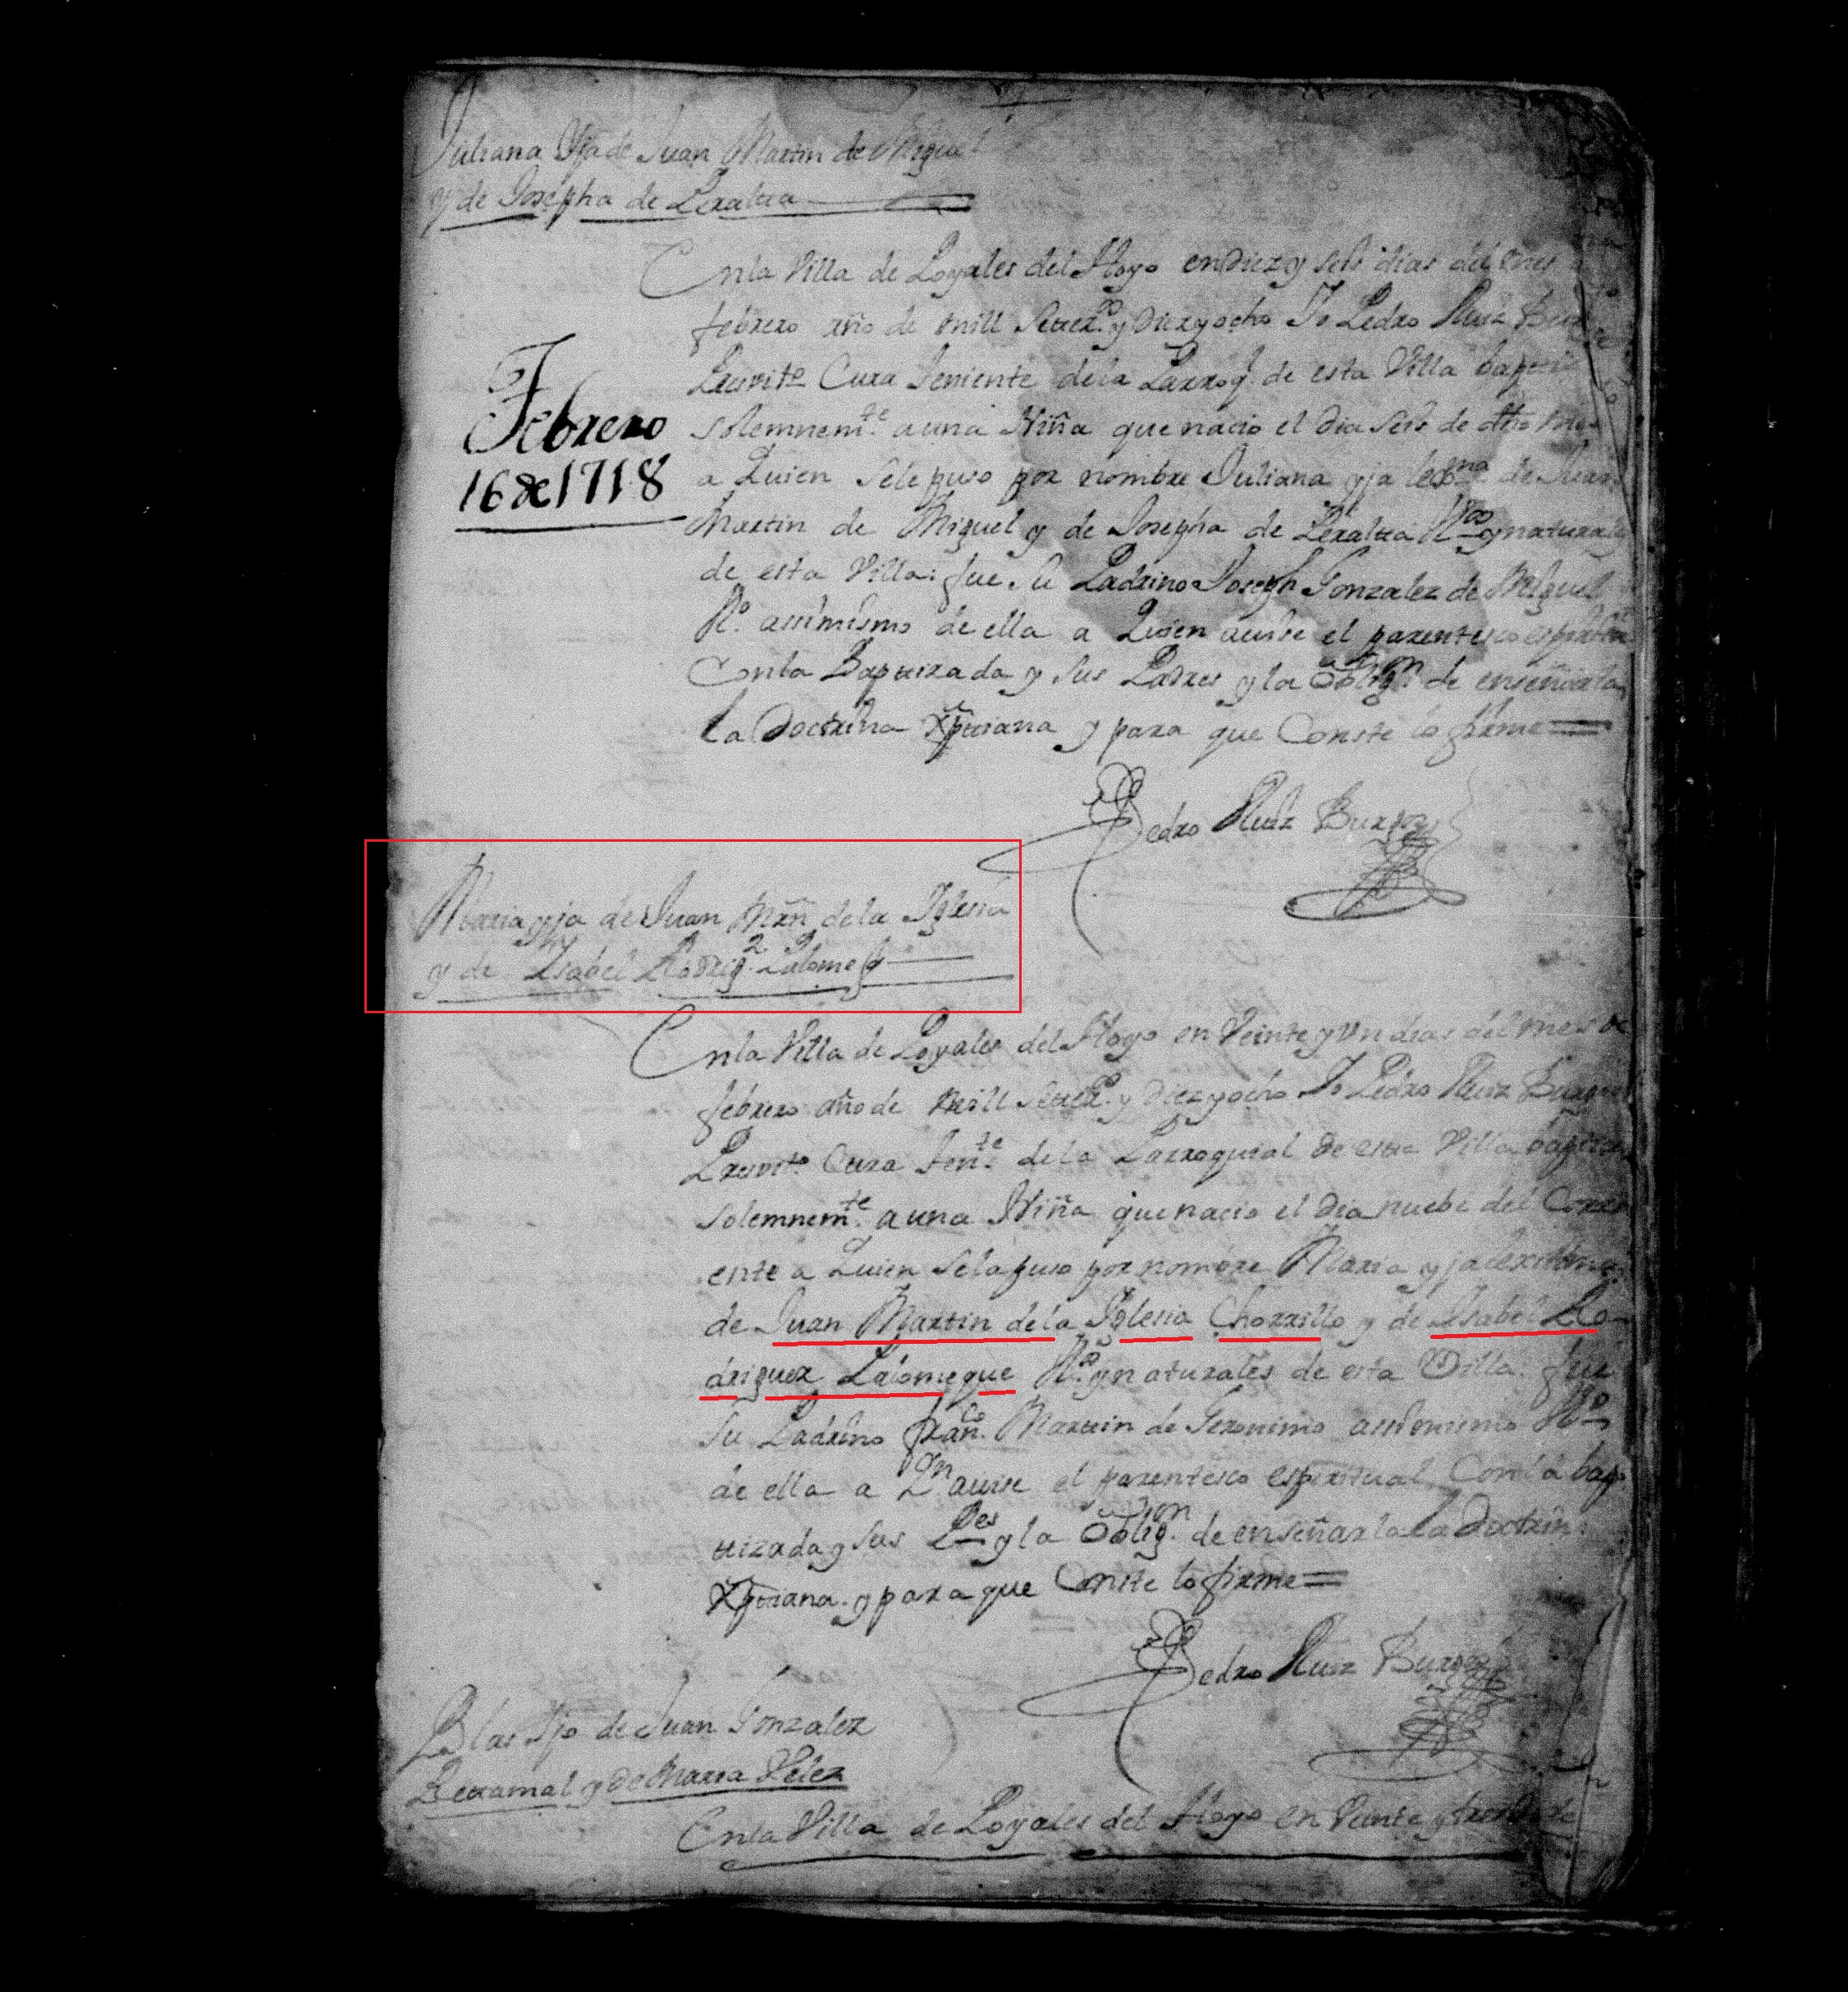 Juliana Yja de Juan Martin de Miguel
y de Josepha de Peralta
En la Villa de Poyales del Hoyo en Diez y seis dias del mes
febrero año de mill Setez.os y Diez y ocho Yo Pedro Ruiz
Presvit.o Cura Teniente de la Parroq. de esta Villa
Febrero
16 de 1718
solemnem.te a una Niña que nacio el Dia seis de dho mes
a Quien se le puso por nombre Juliana yja de Juan
Martin de Miguel y de Josepha de Peralta V.os y naturales
de esta Villa: fue su Padrino Joseph Gonzalez de Miguel
V.o assimismo de ella a Quien avise el parentesco
Con la Baptizada y sus Padres y la oblig.on de enseñarla
La Doctrina Xptiana y para que Conste lo firme
Pedro Ruiz Burgos
Maria yja de Juan Mrn de la Iglesia
y de Isabel Rodrig.z
En la Villa de Poyales del Hoyo en Veinte y Un dias del mes de
febrero año de mill y Diez y ocho Yo Pedro Ruiz Burgos
Presvit.o Cura Ten.te de la Parroquial de esta Villa
solemnem.te a una Niña que nacio el Dia nuebe del Corri
ente a Quien se la puso por nombre Maria yja
de Juan Martin de la Iglesia Chorrillo y de Isabel Ro-
driguez Palomeque V.os y naturales de esta Villa. fue
su Padrino Fran.co Martin de Geronimo assimismo V.o
de ella a Q.n avise el parentesco espiritual Con la bap-
tizada y sus P.es y la oblig.on de enseñarla la Doctrin
Xptiana. y para que Conste lo firme
Pedro Ruiz Burgos
Blas Yjo de Juan Gonzalez
Retamal y de Maria Velez
En la Villa de Poyales del Hoyo en Veinte y